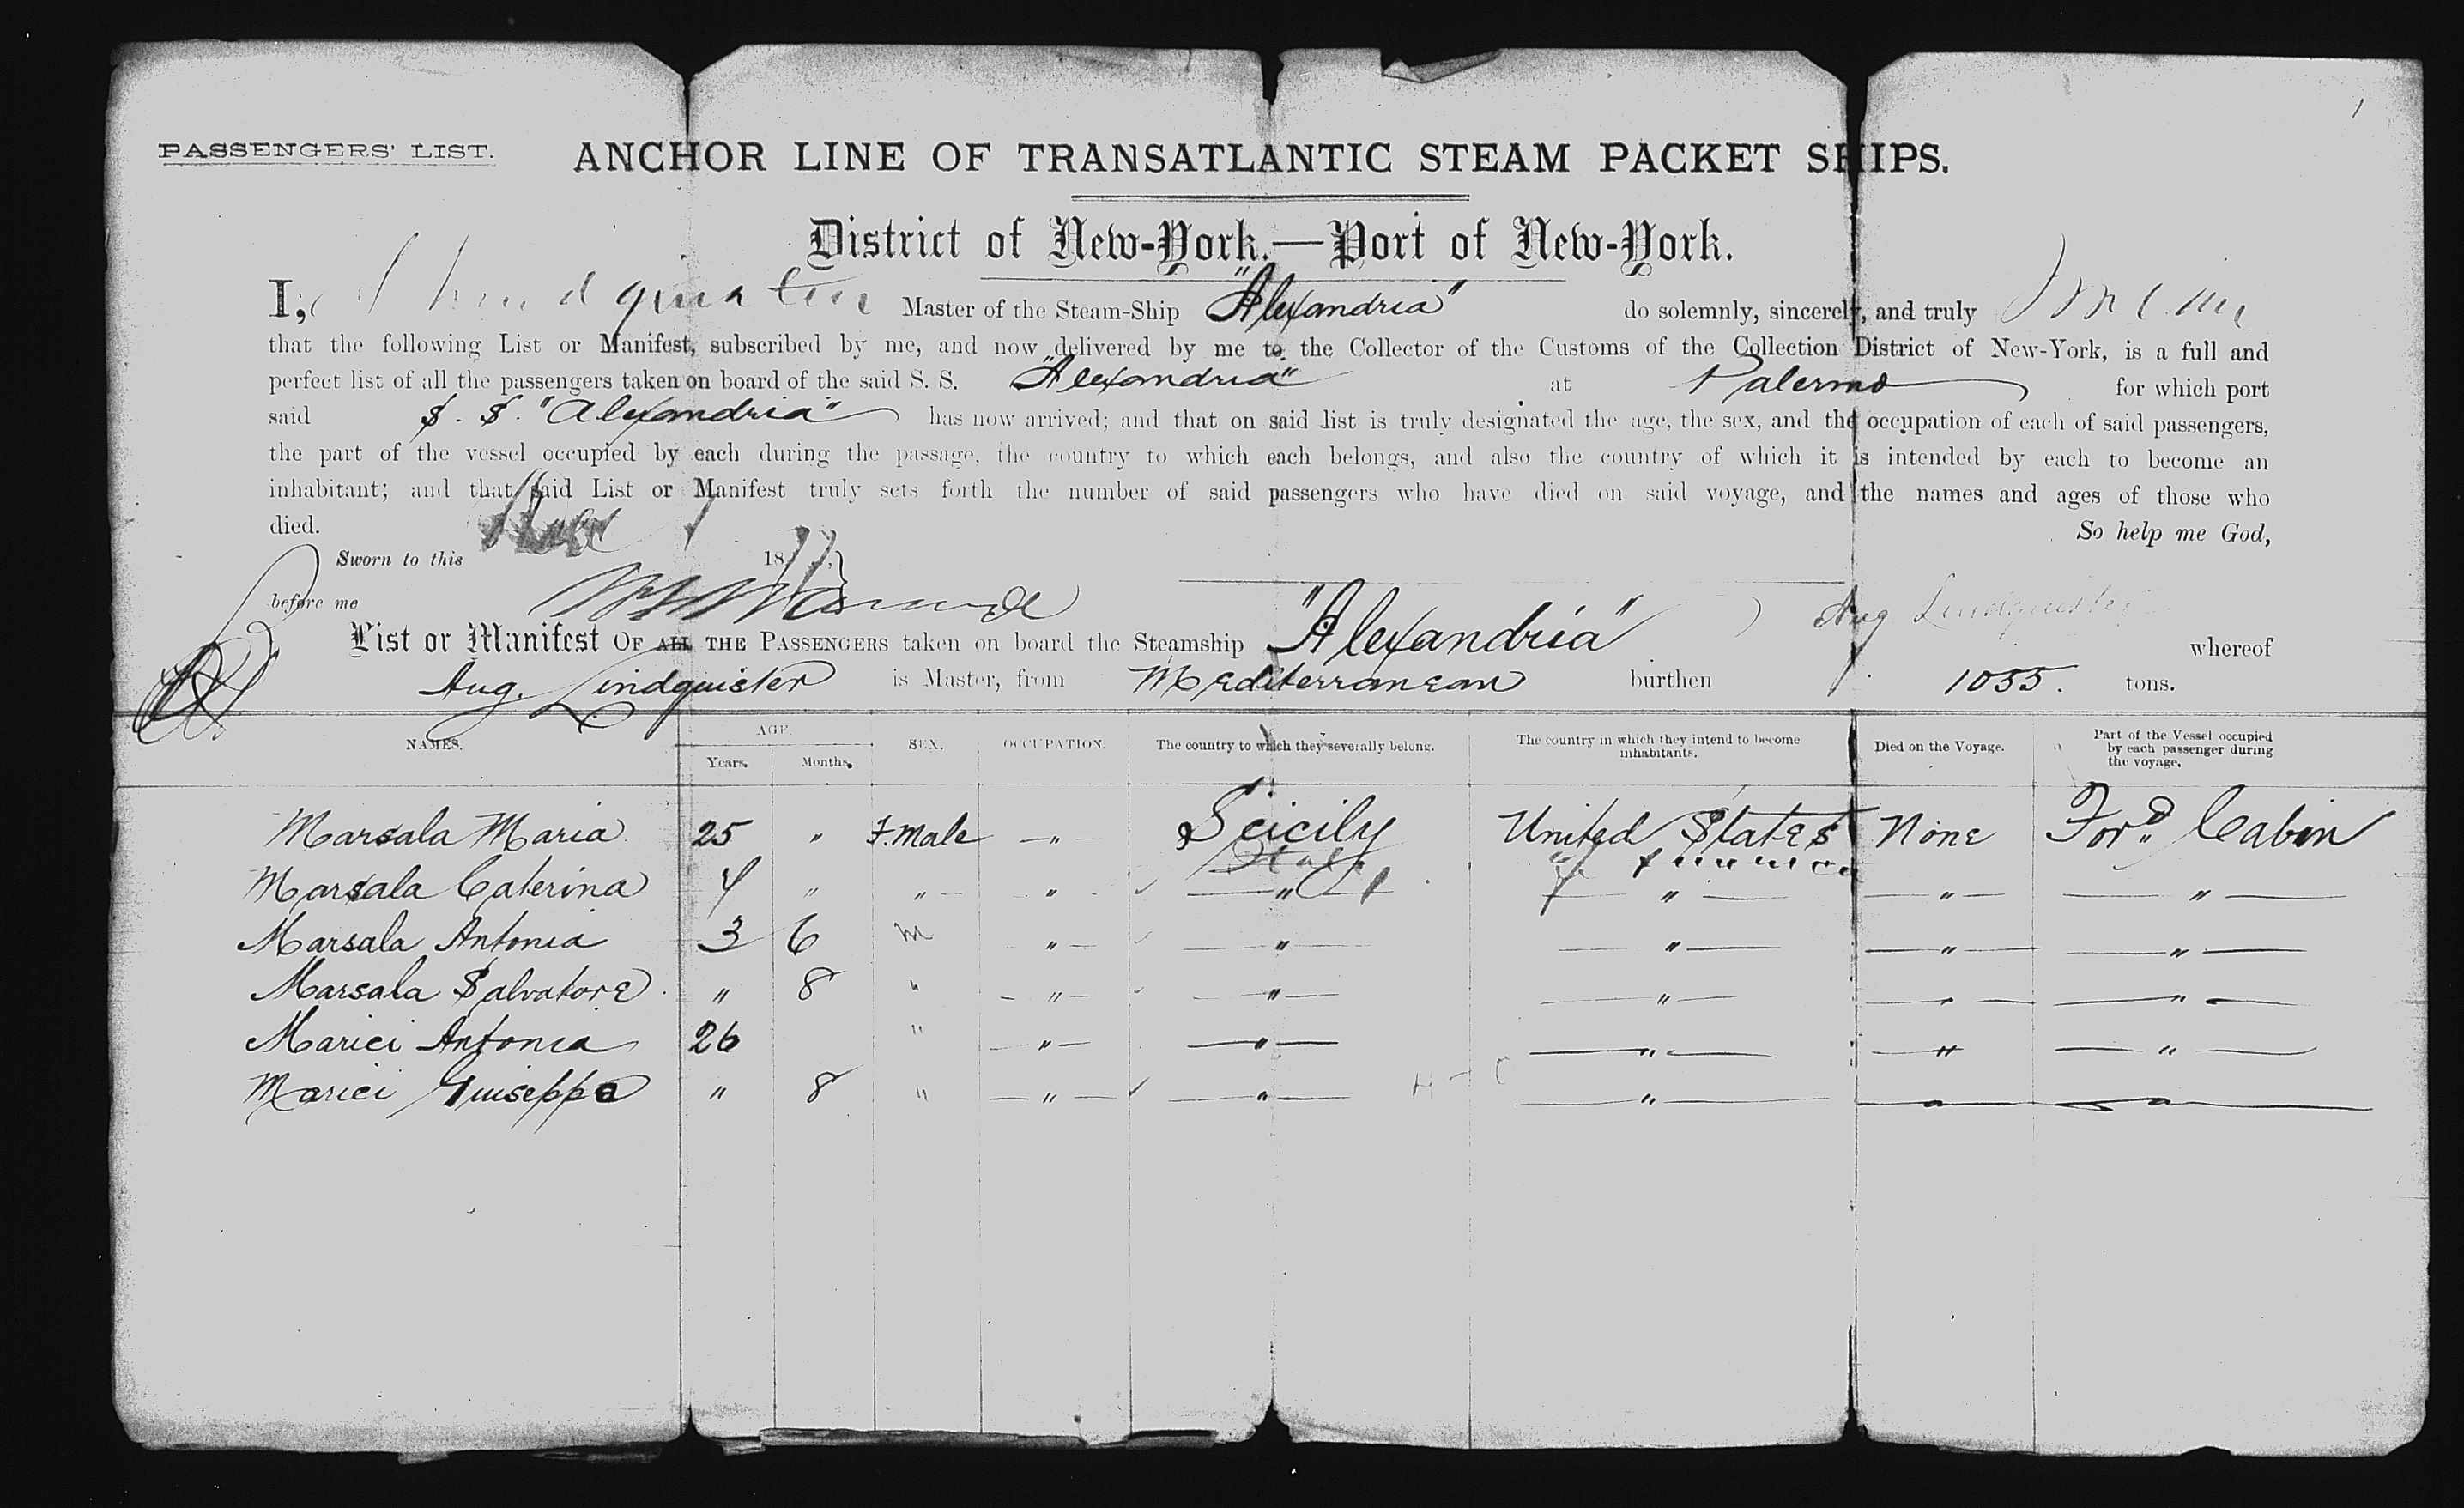 1
PASSENGERS' LIST. ANCHOR LINE OF TRANSATLANTIC STEAM PACKET SHIPS.
District of New-York.—Port of New-York.
I, Master of the Steam-Ship "Alexandria" do solemnly, sincerely, and truly
that the following List or Manifest, subscribed by me, and now delivered by me to the Collector of the Customs of the Collection District of New-York, is a full and
perfect list of all the passengers taken on board of the said S. S. "Alexandria" at Palermo for which port
said S. S. "Alexandria" has now arrived; and that on said list is truly designated the age, the sex, and the occupation of each of said passengers,
the part of the vessel occupied by each during the passage, the country to which each belongs, and also the country of which it is intended by each to become an
inhabitant; and that said List or Manifest truly sets forth the number of said passengers who have died on said voyage, and the names and ages of those who
died. So help me God,
Sworn to this 1877,
before me Aug Lindquister
List or Manifest OF ALL THE PASSENGERS taken on board the Steamship "Alexandria" whereof
Aug. Lindquister is Master, from Mediterranean burthen 1055. tons.
NAMES. AGE. Years. Months. SEX. OCCUPATION. The country to which they severally belong. The country in which they intend to become inhabitants. Died on the Voyage. Part of the Vessel occupied by each passenger during the voyage.
Marsala Maria 25 " F.male — " Scicily United States None Ford. Cabin
Italy
Marsala Caterina 4 " " — " — " — — " — — " — — " —
Marsala Antonia 3 6 M " — — " — — " — — " — — " —
Marsala Salvatore " 8 " — " — — " — — " — — " — — " —
Marici Antonia 26 " — " — — " — — " — — " — — " —
Marici Guiseppa " 8 " — " — — " — — " — — " — — " —